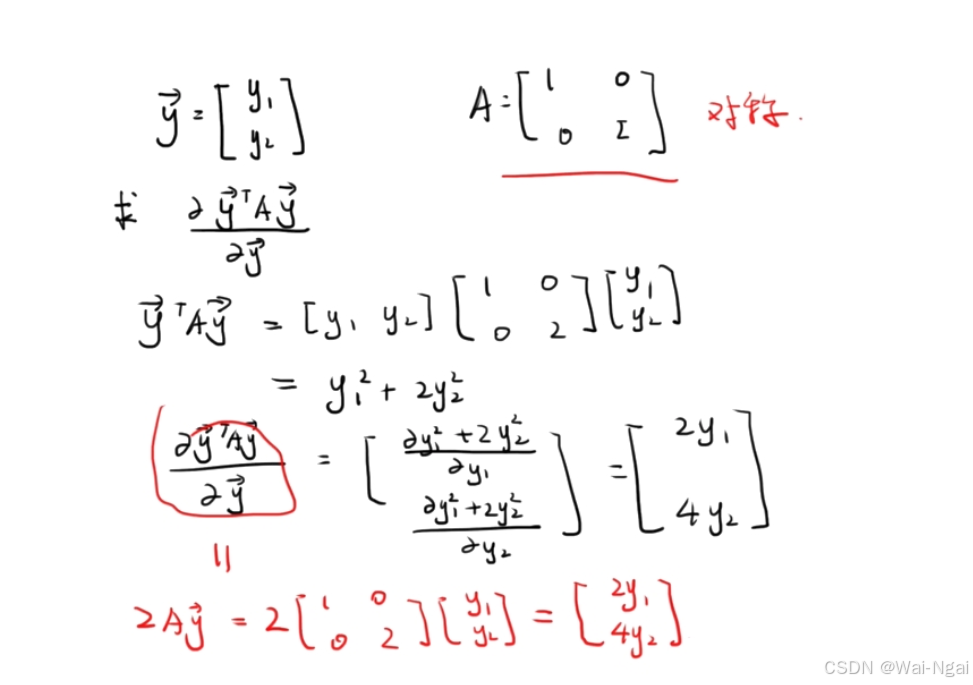 y⃗ = [ y₁ y₂ ] A = [ 1 0 0 2 ] 对称.
求 ∂y⃗ᵀAy⃗ / ∂y⃗
y⃗ᵀAy⃗ = [y₁ y₂] [ 1 0 0 2 ] [ y₁ y₂ ]
= y₁² + 2y₂²
∂y⃗ᵀAy⃗ / ∂y⃗ = [ ∂y₁²+2y₂² / ∂y₁ ∂y₁²+2y₂² / ∂y₂ ] = [ 2y₁ 4y₂ ]
||
2Ay⃗ = 2 [ 1 0 0 2 ] [ y₁ y₂ ] = [ 2y₁ 4y₂ ]
CSDN @Wai-Ngai